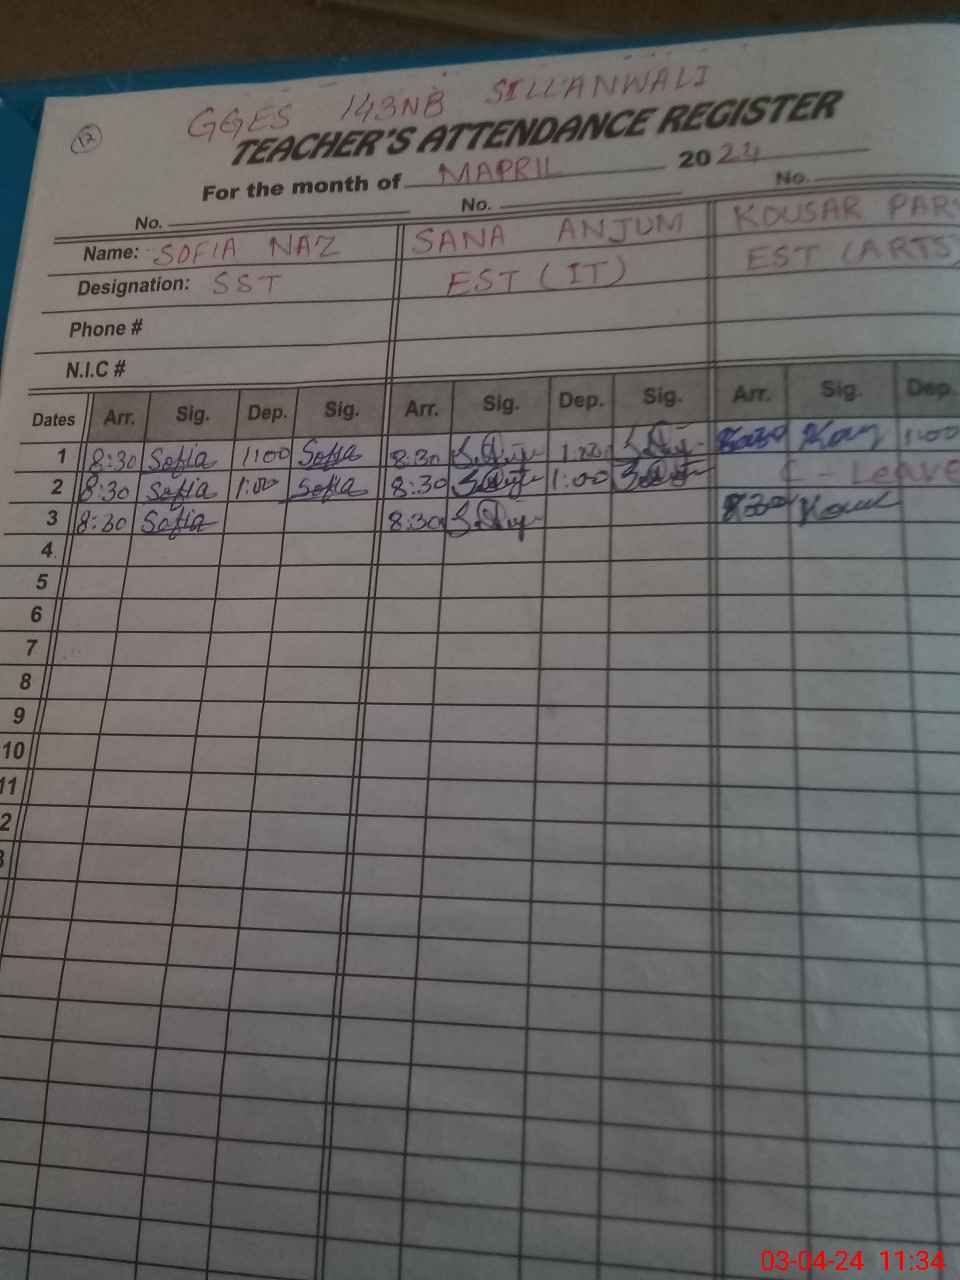 12
GGES 143NB SILLANWALI
TEACHER'S ATTENDANCE REGISTER
For the month of MAPRIL 2024
No. No. No.
Name: SOFIA NAZ SANA ANJUM KOUSAR PAR
Designation: SST EST (IT) EST (ARTS)
Phone #
N.I.C #
Dates Arr. Sig. Dep. Sig. Arr. Sig. Dep. Sig. Arr. Sig. Dep.
1 8:30 Sofia 1:00 Sofia 8:30 1:00 1:00
2 8:30 Sofia 1:00 Sofia 8:30 1:00 C - Leave
3 8:30 Sofia 8:30 8:30
4
5
6
7
8
9
10
11
2
3
03-04-24 11:34